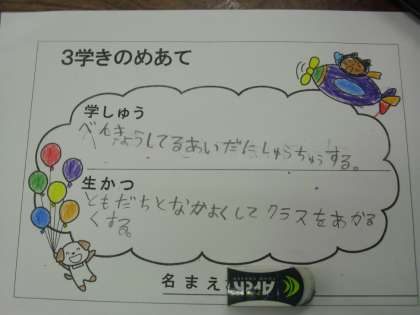 3学きのめあて
学しゅう
べんきょうしてるあいだにしゅうちゅうする。
生かつ
ともだちとなかよくしてクラスをあかる
くする。
名まえ
Arch